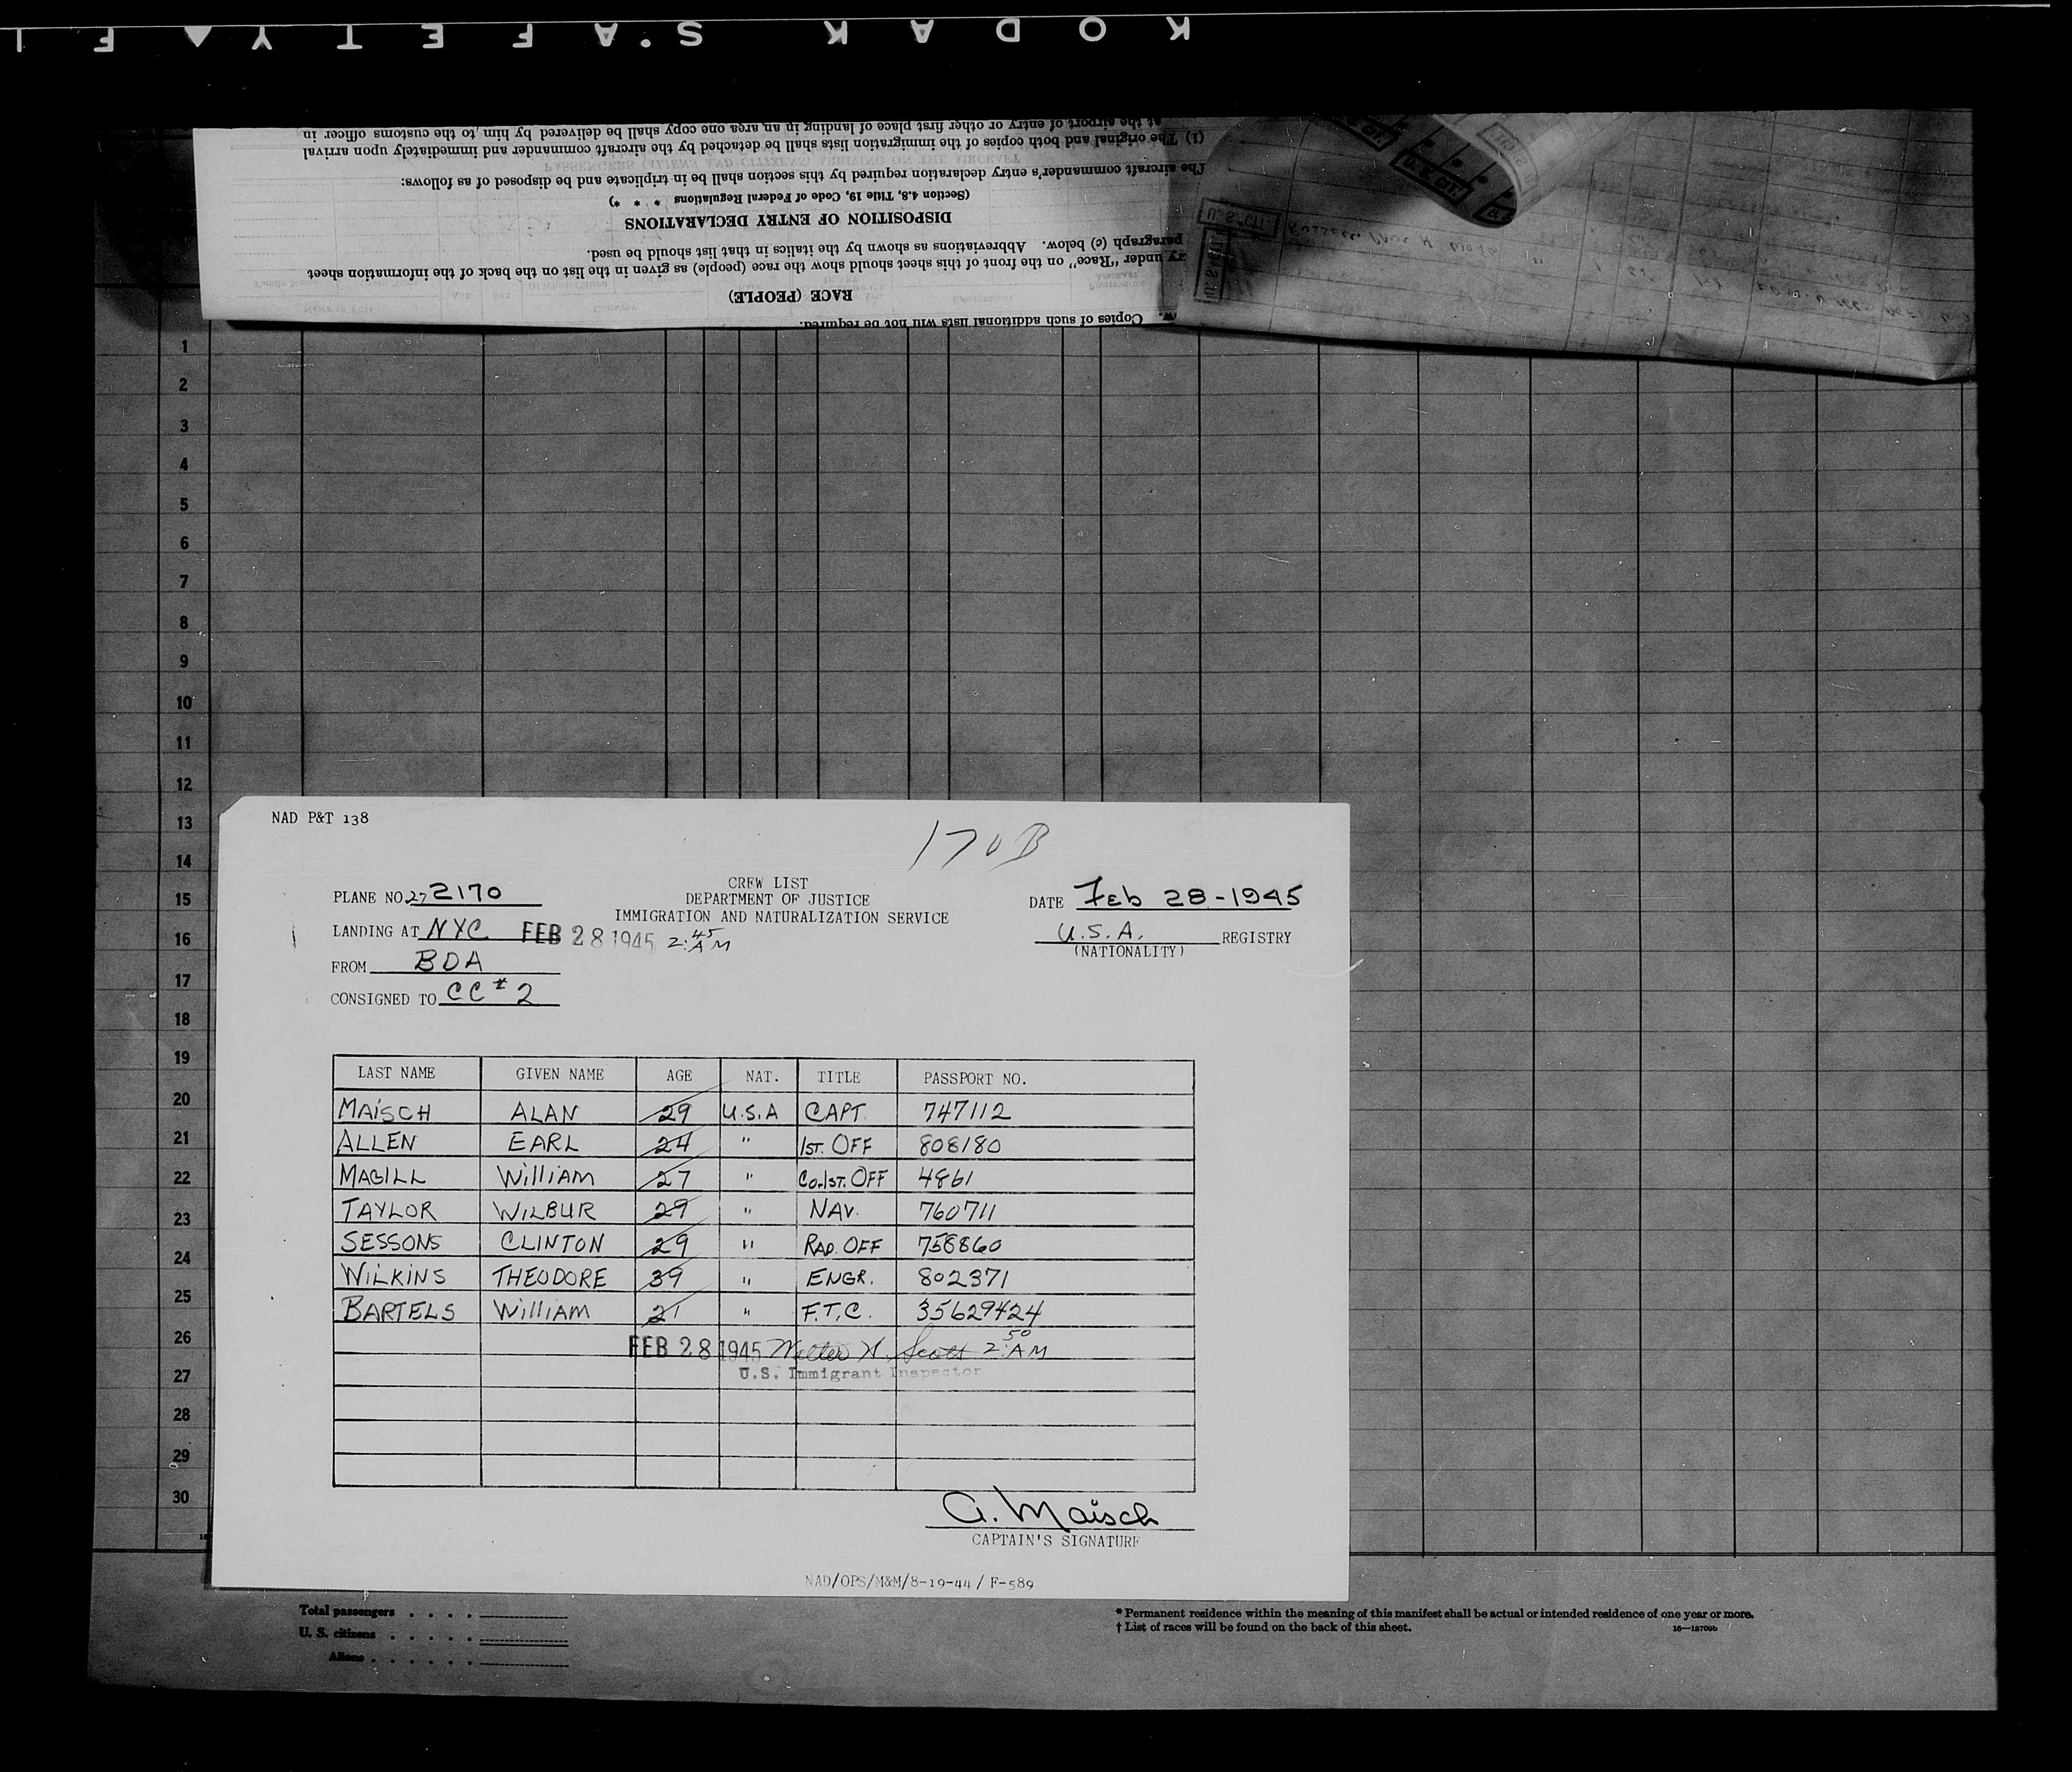 KODAK SAFETY FI
at the airport of entry or other first place of landing in an area one copy shall be delivered by him to the customs officer in
(1) The original and both copies of the immigration lists shall be detached by the aircraft commander and immediately upon arrival
The aircraft commander's entry declaration required by this section shall be in triplicate and be disposed of as follows:
(Section 4.8, Title 19, Code of Federal Regulations * * *)
DISPOSITION OF ENTRY DECLARATIONS
paragraph (c) below. Abbreviations as shown by the italics in that list should be used.
under "Race" on the front of this sheet should show the race (people) as given in the list on the back of the information sheet
RACE (PEOPLE)
Copies of such additional lists will not be required.
U.S. CIT.
1
2
3
4
5
6
7
8
9
10
11
12
13
14
15
16
17
18
19
20
21
22
23
24
25
26
27
28
29
30
NAD P&T 138
170B
CREW LIST
DEPARTMENT OF JUSTICE
IMMIGRATION AND NATURALIZATION SERVICE
PLANE NO. 27 2170
DATE Feb 28-1945
LANDING AT NYC FEB 28 1945 2:45 AM
U.S.A. REGISTRY
(NATIONALITY)
FROM BDA
CONSIGNED TO CC#2
LAST NAME GIVEN NAME AGE NAT. TITLE PASSPORT NO.
MAISCH ALAN 29 U.S.A CAPT. 747112
ALLEN EARL 24 " 1ST. OFF 808180
MAGILL WilliAM 27 " Co-1ST. OFF 4861
TAYLOR WILBUR 29 " NAV. 760711
SESSONS CLINTON 29 " RAD. OFF 758860
WILKINS THEODORE 39 " ENGR. 802371
BARTELS WilliAM 21 " F.T.C. 35629424
FEB 28 1945 Walter H. Scott 2:50 AM
U.S. Immigrant Inspector
A. Maisch
CAPTAIN'S SIGNATURE
NAD/OPS/M&M/8-19-44/ F-589
Total passengers . . . .
U. S. citizens . . . . .
Aliens . . . . . .
* Permanent residence within the meaning of this manifest shall be actual or intended residence of one year or more.
† List of races will be found on the back of this sheet.
16—18709b